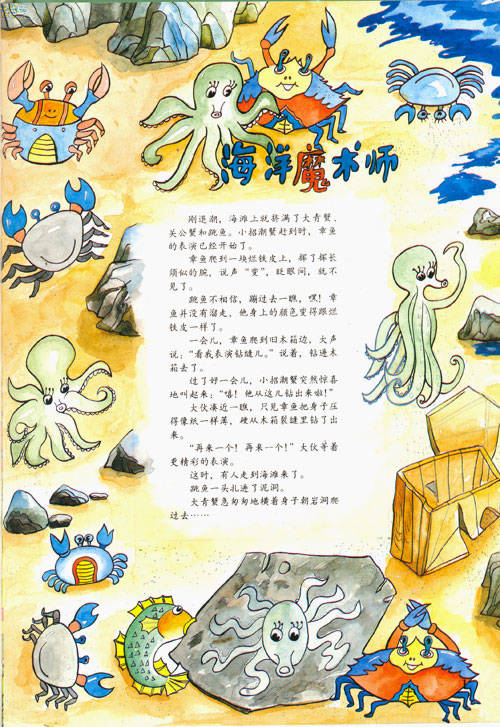 海洋魔术师
刚退潮，海滩上就挤满了大青蟹、
关公蟹和跳鱼。小招潮蟹赶到时，章鱼
的表演已经开始了。
章鱼爬到一块烂铁皮上，挥了挥长
须似的腕，说声“变”，眨眼间，就不
见了。
跳鱼不相信，蹦过去一瞧，嘿！章
鱼并没有溜走，他身上的颜色变得跟烂
铁皮一样了。
一会儿，章鱼爬到旧木箱边，大声
说：“看我表演钻缝儿。”说着，钻进木
箱去了。
过了好一会儿，小招潮蟹突然惊喜
地叫起来：“嘻！他从这儿钻出来啦！”
大伙凑近一瞧，只见章鱼把身子压
得像纸一样薄，硬从木箱裂缝里钻了出
来。
“再来一个！再来一个！”大伙等着
更精彩的表演。
这时，有人走到海滩来了。
跳鱼一头扎进了泥洞。
大青蟹急匆匆地横着身子朝岩洞爬
过去……